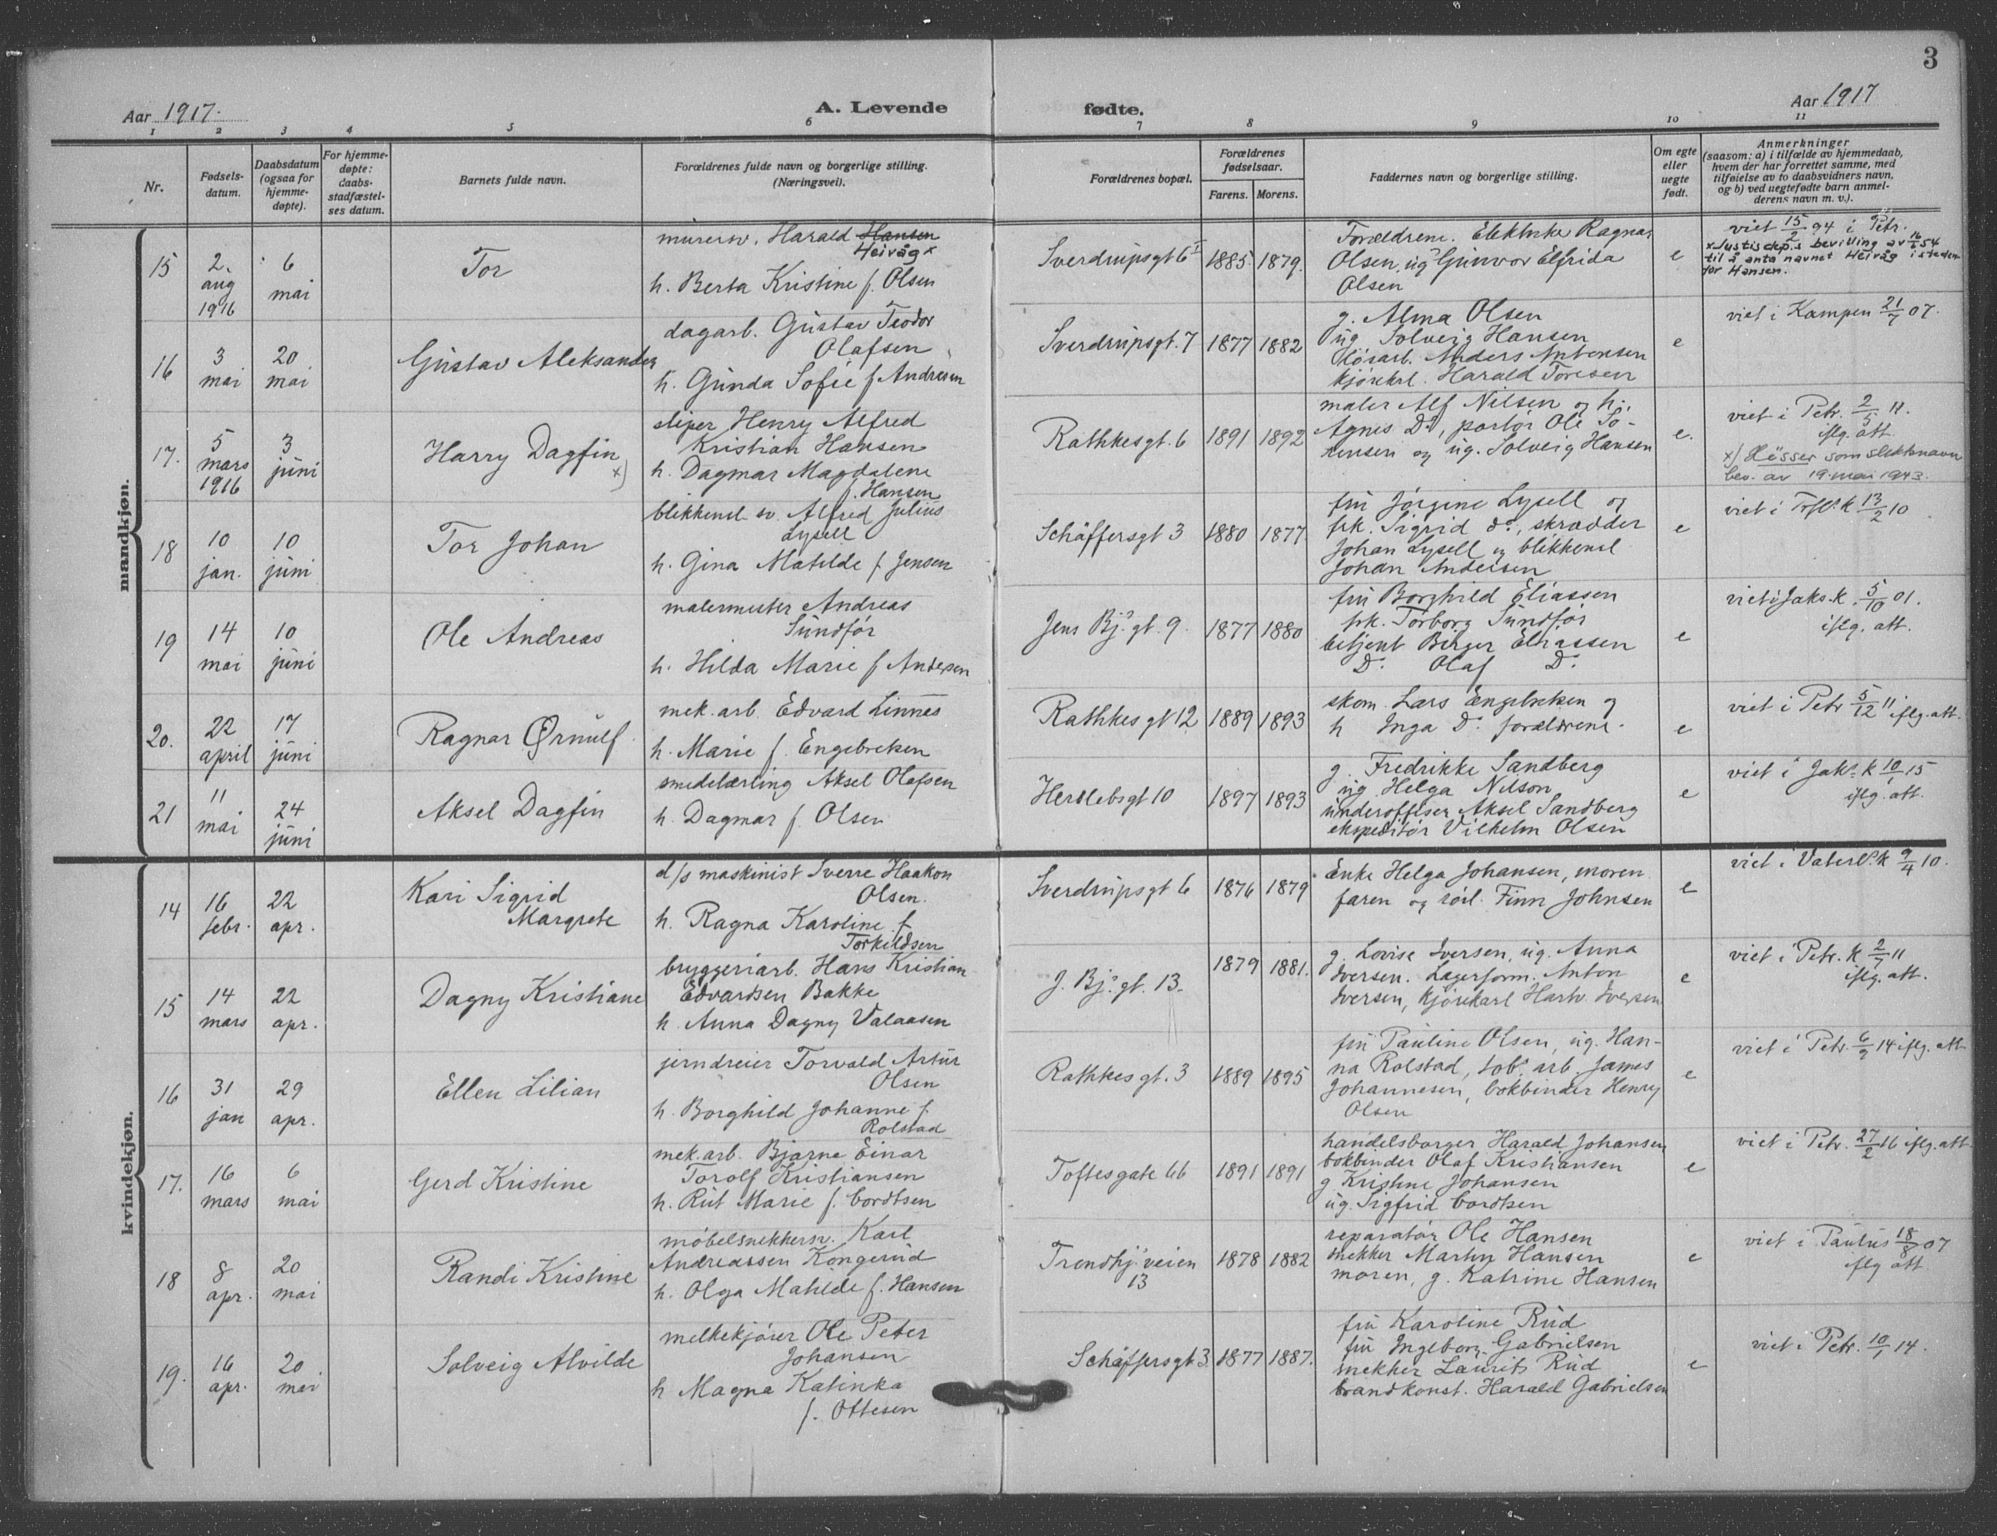 3
Aar 1917.
A. Levende
fødte.
Aar 1917
1 2 3 4 5 6 7 8 9 10 11
Nr.
Fødsels-
datum.
Daabsdatum
(ogsaa for
hjemme-
døpte).
For hjemme-
døpte:
daabs-
stadfæstel-
ses datum.
Barnets fulde navn.
Forældrenes fulde navn og borgerlige stilling.
(Næringsvei).
Forældrenes bopæl.
Forældrenes
fødselsaar.
Farens. Morens.
Faddernes navn og borgerlige stilling.
Om egte
eller
uegte
født.
Anmerkninger
(saasom: a) i tilfælde av hjemmedaab,
hvem der har forrettet samme, med
tilføielse av to daabsvidners navn,
og b) ved uegtefødte barn anmel-
derens navn m. v.).
mandkjøn.
15
2.
aug
1916
6
mai
Tor
murersv. Harald Hansen
Heivåg x
h. Berta Kristine f. Olsen
Sverdrupsgt 6 I
1885. 1879.
Forældrene. Elektrike Ragnar
Olsen, ug Gunvor Elfrida
Olsen
e
viet 15/2 94 i Petr.
x Justisdep.s bevilling av 16/6 54
til å anta navnet Heivåg isteden
for Hansen.
16
3
mai
20
mai
Gustav Aleksander
dagarb. Gustav Teodor
Olafsen
h. Gunda Sofie f Andresen
Sverdrupsgt. 7
1877 1882
g. Alma Olsen
ug Solveig Hansen
løsarb. Anders Antonsen
kjørekrl. Harald Toresen
e
viet i Kampen 21/7 07.
17.
5
mars
1916
3
juni
Harry Dagfin x)
sliper Henry Alfred
Kristian Hansen
h. Dagmar Magdalene
f. Hansen
Rathkesgt. 6
1891 1892
maler Alf Nilsen og h.
Agnes Do, portør Ole So-
rensen og ug. Solveig Hansen
e.
viet i Petr. 2/5 11.
iflg. att.
x) Hösser som slektsnavn
bev. av 19. mai 1943.
18
10
jan.
10
juni
Tor Johan
blikkensl. sv. Alfred Julius
Lysell
h. Gina Matilde f Jensen
Schäffersgt 3
1880 1877.
fru Jørgine Lysell og
frk. Sigrid do, skrædder
Johan Lysell og blikkensl
Johan Andersen
e
viet i Trefl. k 13/2 10
19
14
mai
10
juni
Ole Andreas
malermester Andreas
Sundfør
h. Hilda Marie f Andersen
Jens Bj.s gt. 9.
1877 1880
fru Borghild Eliassen
frk. Torborg Sundfør
betjent Birger Eliassen
Do Olaf Do
e
viet i Jaks. k. 5/10 01.
iflg. att.
20.
22
april
17
juni
Ragnar Ørnulf
mek. arb. Edvard Linnes
h. Marie f. Engebretsen
Rathkesgt 12
1889 1893
skom. Lars Engebretsen og
h Inga Do forældrene.
e
viet i Petr 5/12 11 iflg. att.
21
11
mai
24
juni
Aksel Dagfin
smedelærling Aksel Olafsen
h. Dagmar f. Olsen
Herslebsgt 10
1897 1893
g. Fredrikke Sandberg
ug Helga Nilson
underoffiser Aksel Sandberg
ekspeditør Vilhelm Olsen
e
viet i Jaks. k 10/1 15
iflg. att.
kvindekjøn.
14
16
febr.
22
apr.
Kari Sigrid
Margrete
d/s maskinist Sverre Haakon
Olsen.
h. Ragna Karoline f.
Torkildsen
Sverdrupsgt 6
1876 1879
Enke Helga Johansen, moren
faren og Finn Johnsen
e
viet i Vaterl. k 9/4 10.
15
14
mars
22
apr.
Dagny Kristiane
bryggeriarb. Hans Kristian
Edvardsen Bakke
h. Anna Dagny Valaasen
J. Bj.s gt. 13.
1879 1881.
g. Lovise Iversen, ug. Anna
Iversen. Lagerform. Anton
Iversen, kjørekarl Hartv. Iversen
e
viet i Petr. k 2/7 11
iflg. att.
16
31
jan
29
apr.
Ellen Lilian
jerndreier Torvald Artur
Olsen
h. Borghild Johanne f.
Rolstad
Rathkesgt. 3
1889 1895
fru Pauline Olsen, ug. Han-
na Rolstad, tob. arb. James
Johannesen, bokbinder Henry
Olsen
e
viet i Petr. 6/9 14 iflg. att
17.
16
mars
6
mai
Gerd Kristine
mek. arb. Bjarne Einar
Torolf Kristiansen
h. Rut Marie f. Cordtsen
Toftesgate 66
1891 1891
handelsborger Harald Johansen
bokbinder Olaf Kristiansen
g Kristine Johansen
ug. Sigfrid Cordtsen
e
viet i Petr. 27/2 16 iflg. att
18
8
apr.
20
mai
Randi Kristine
møbelsnekkersv. Karl
Andreassen Kongerud
h. Olga Matilde f. Hansen
Trondhj. veien
13
1878 1882
reparatør Ole Hansen
snekker Martin Hansen
moren, g. Katrine Hansen
e
viet i Paulus 18/8 07
iflg att.
19.
16
apr.
20
mai
Solveig Alvilde
melkekjører Ole Peter
Johansen
h Magna Katinka
f. Ottesen
Schäffersgt 3
1877 1887.
fru Karoline Rud
fru Ingeborg Gabrielsen
snekker Laurits Rud
brandkonst. Harald Gabrielsen
e
viet i Petr. 10/1 14.